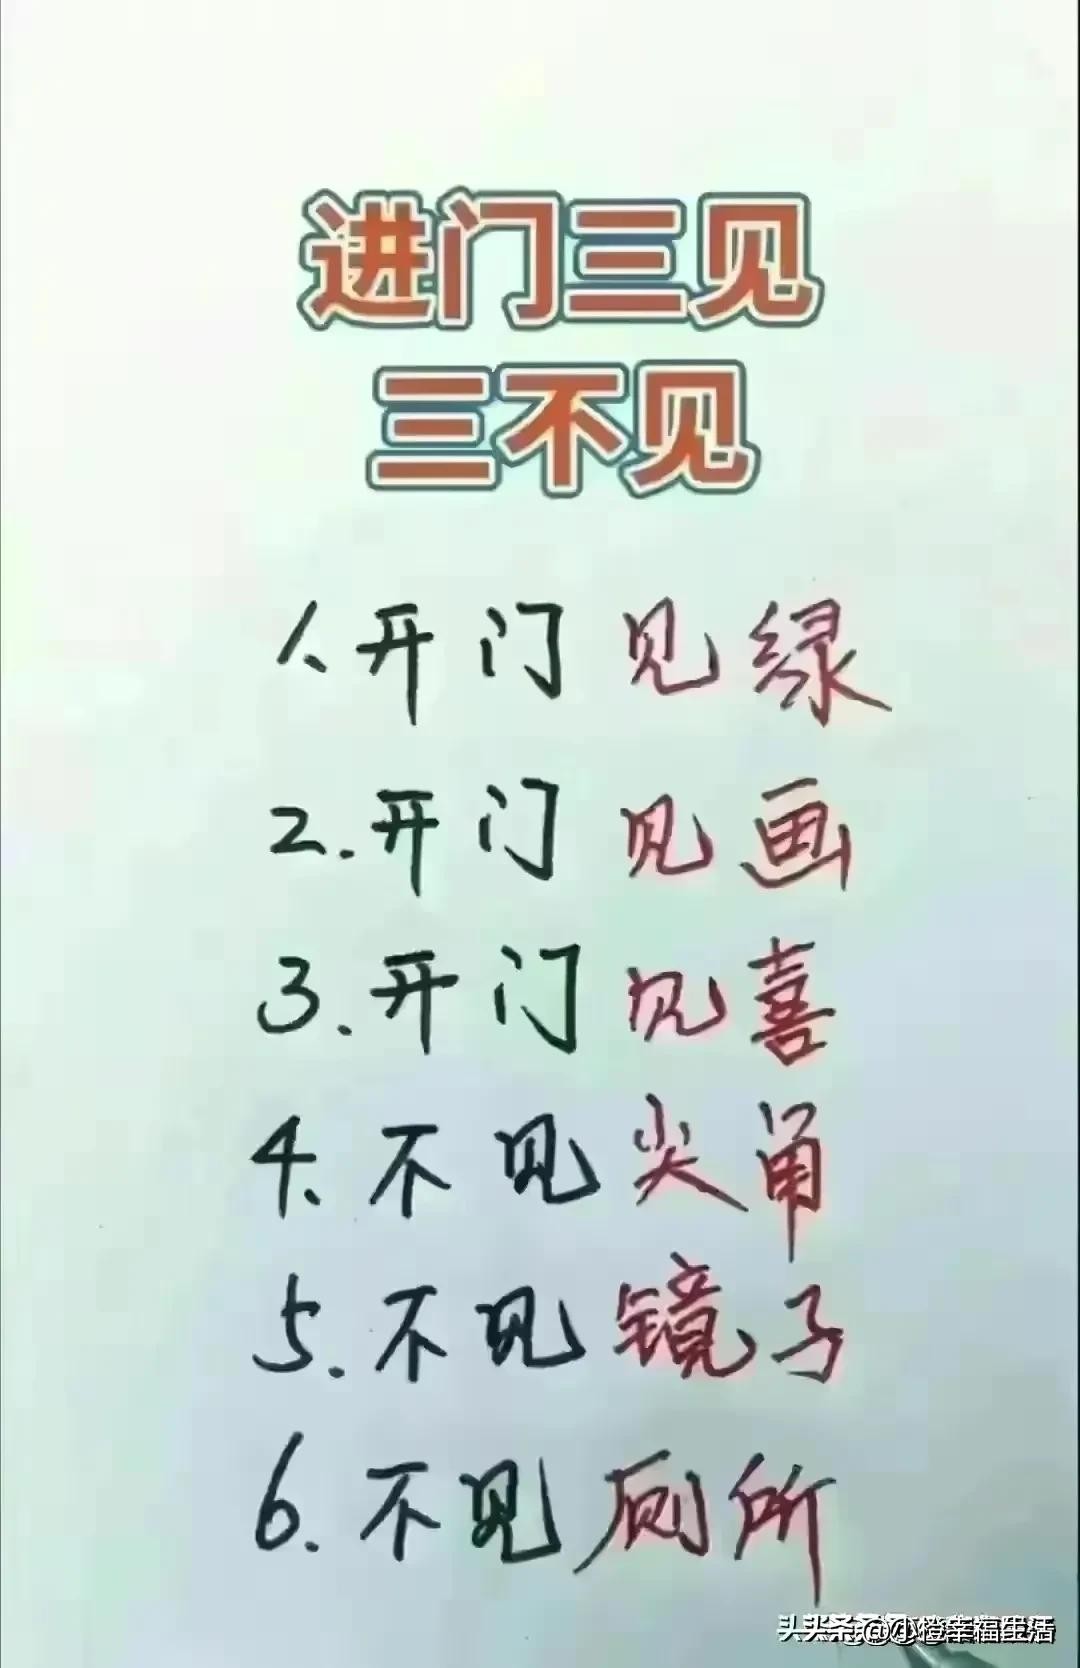 进门三见
三不见
1、开门见绿
2.开门见画
3.开门见喜
4、不见尖角
5.不见镜子
6.不见厕所
@小橙幸福生活